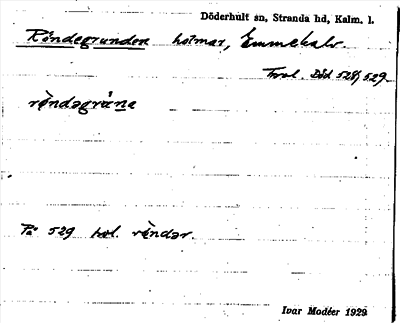 Döderhult sn, Stranda hd, Kalm. l.
Röndegrunden holmar, Emmekalv.
Trol. Död 528, 529
På 529 hol. rèndar.
Ivar Modéer 1929